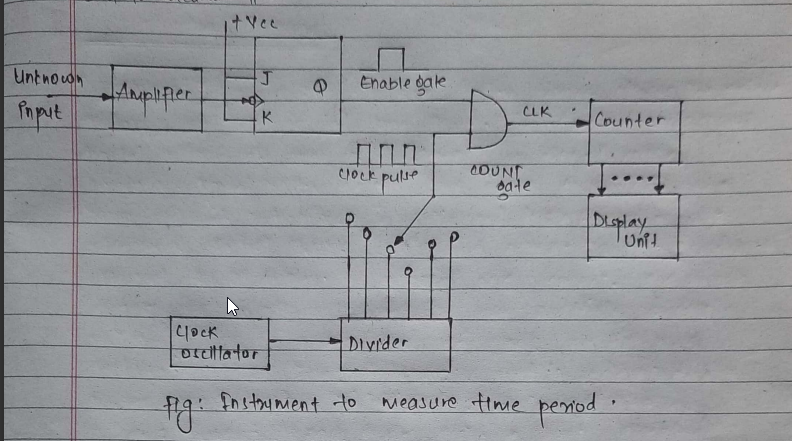 +Vcc
Unknown
Input
Amplifier
J
Q
K
Enable gate
CLK
Counter
Clock pulse
COUNT
gate
Display
Unit
Clock
Oscillator
Divider
fig: Instrument to measure time period.